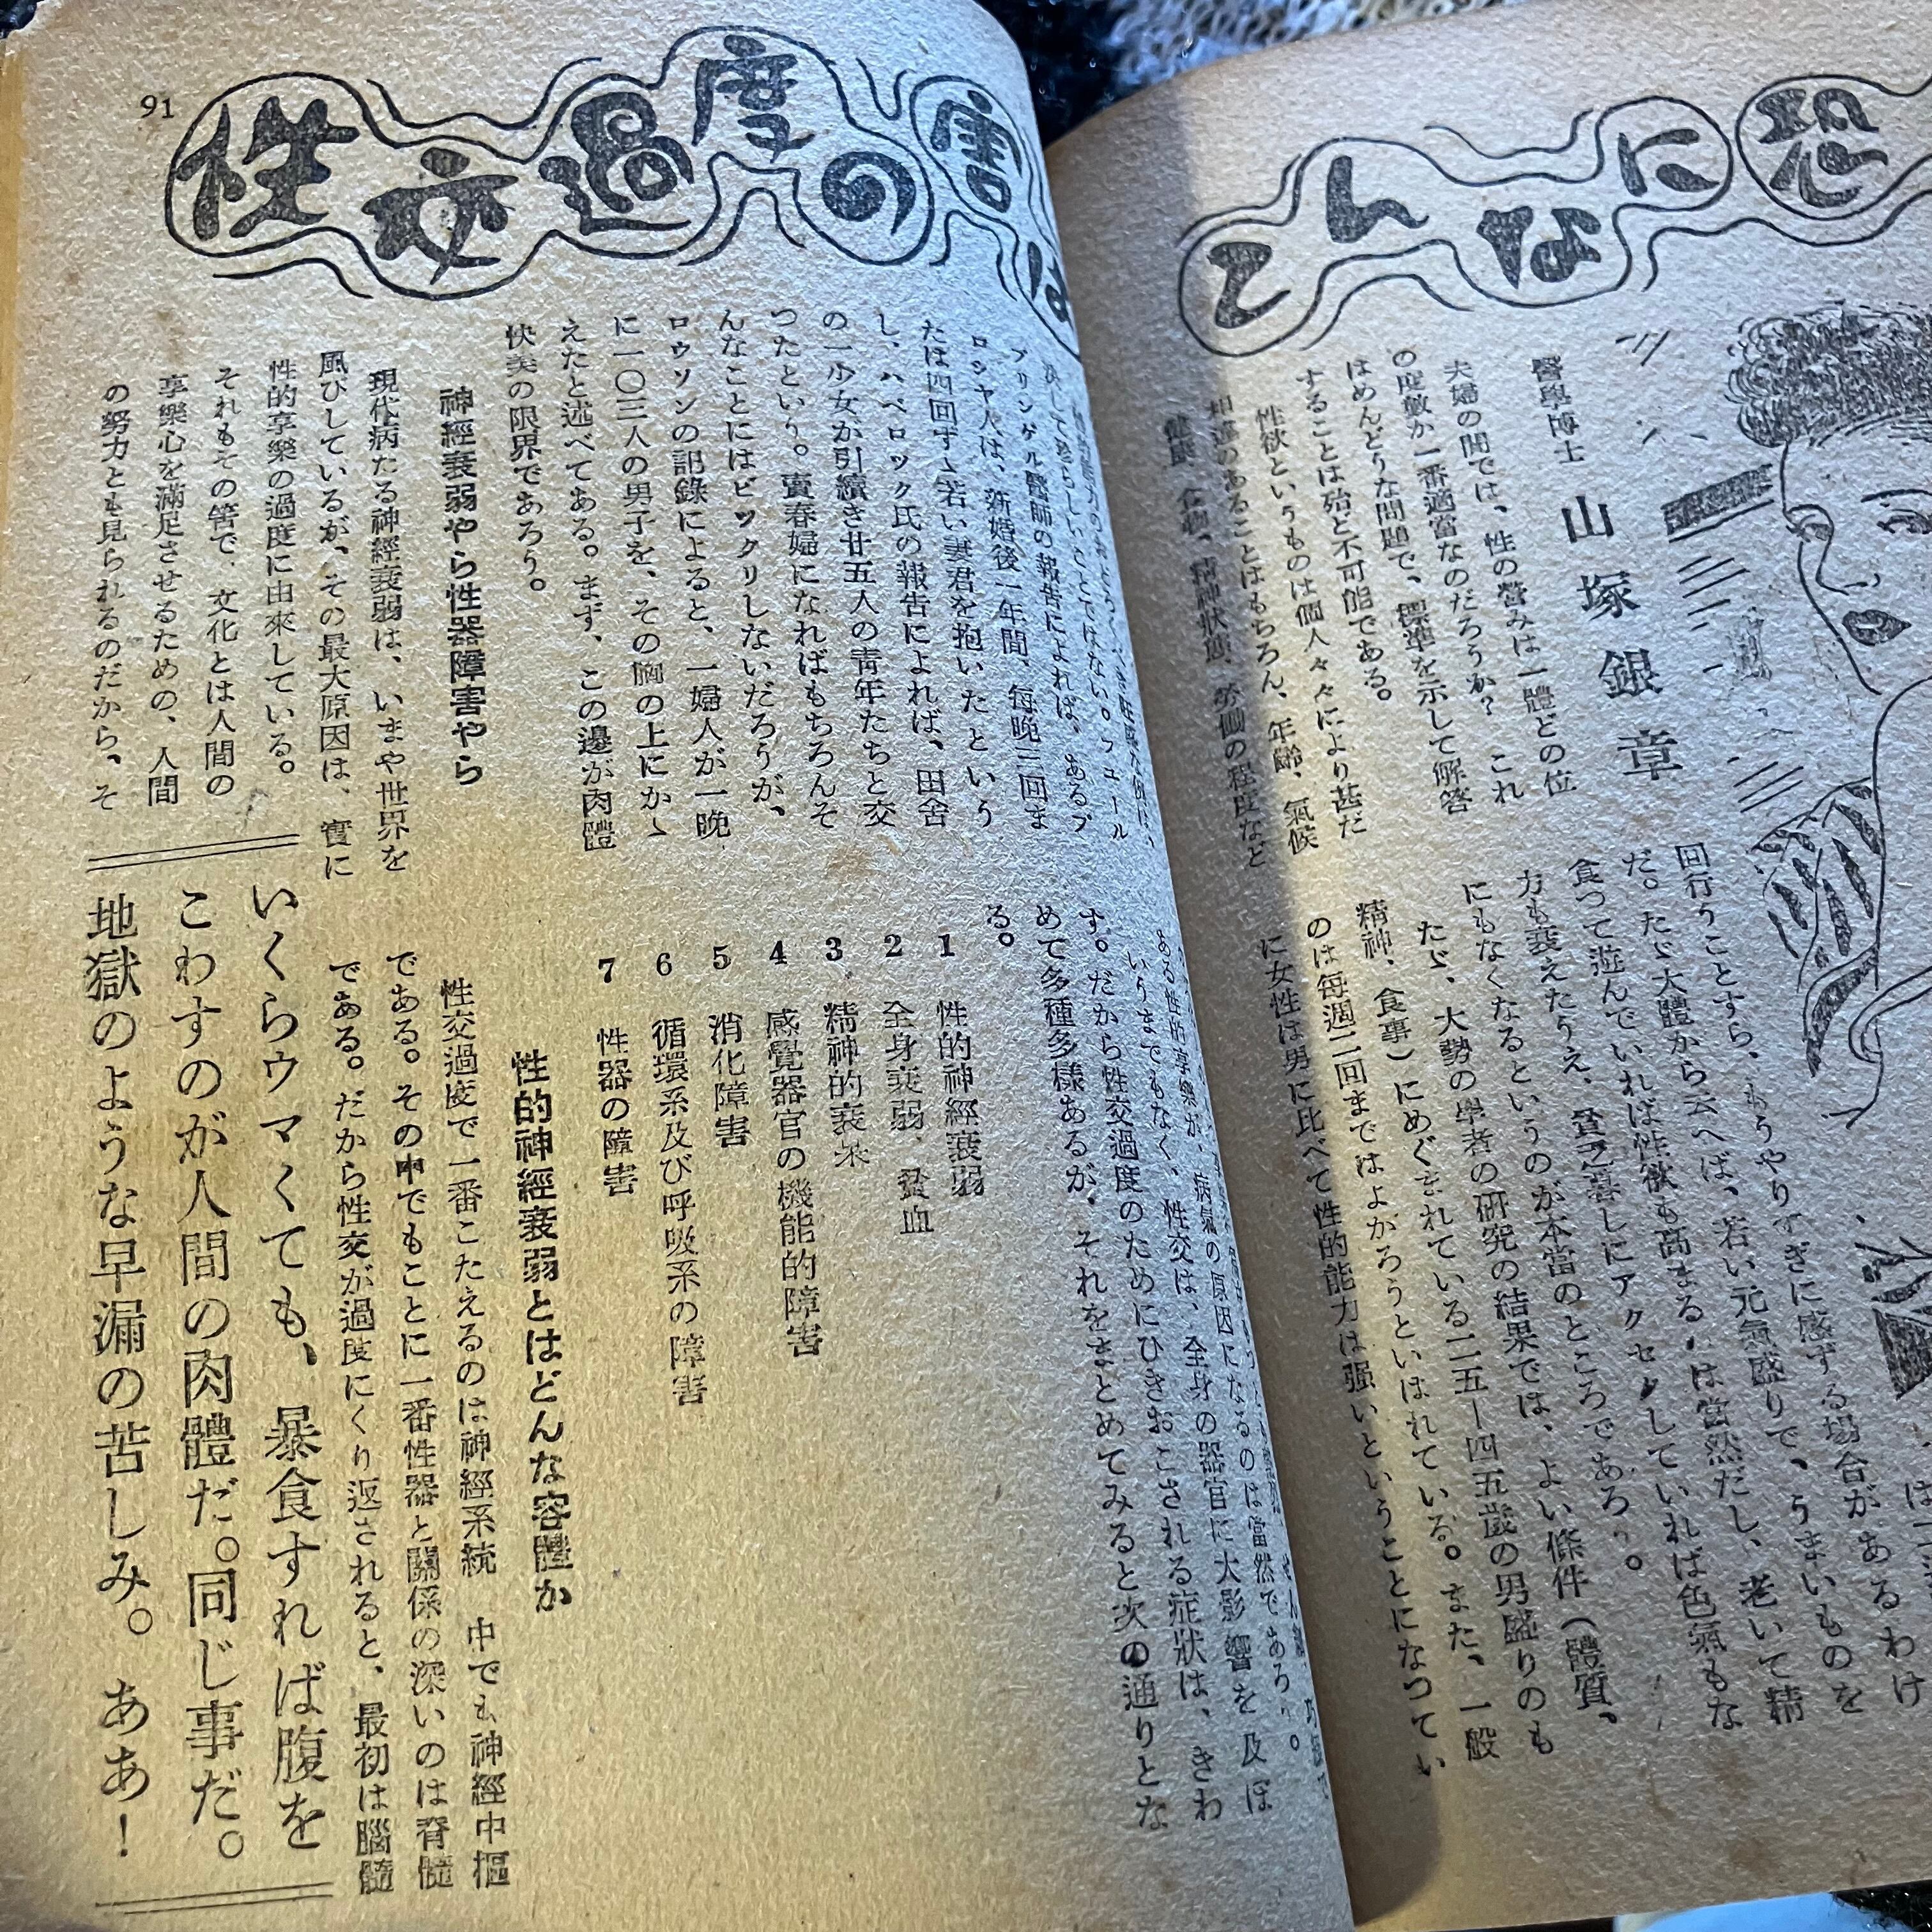 性交過度の害は
こんなに恐
醫學博士 山塚銀章
夫婦の間では、性の營みは一體どの位
の度數が一番適當なのだろうか? これ
はめんどうな問題で、標準を示して解答
することは殆ど不可能である。
性欲というものは個人々々により甚だ
相違のあることはもちろん、年齡、氣候
健康、食物、精神狀態、勞働の程度など
回行うことすら、もうやりすぎに感ずる場合があるわけ
だ。たゞ大體から云へば、若い元氣盛りで、うまいものを
食つて遊んでいれば性欲も高まるのは當然だし、老いて精
力も衰えたうえ、貧乏暮しにアクセクしていれば色氣もな
にもなくなるというのが本當のところであろう。
たゞ、大勢の學者の研究の結果では、よい條件(體質、
精神、食事)にめぐまれている二五ー四五歲の男盛りのも
のは毎週二回まではよかろうといはれている。また、一般
に女性は男に比べて性的能力は强いということになつてい
91
決して珍らしいことではない。フユール
ブリンゲル醫師の報告によれば、あるブ
ロシヤ人は、新婚後一年間、毎晩三回ま
たは四回ずゝ若い妻君を抱いたという
し、ハベロック氏の報告によれば、田舍
の一少女が引續き廿五人の靑年たちと交
つたという。賣春婦になればもちろんそ
んなことにはビックリしないだろうが、
ロウソンの記錄によると、一婦人が一晩
に一〇三人の男子を、その胸の上にかゝ
えたと述べてある。まず、この邊が肉體
快美の限界であろう。
神經衰弱やら性器障害やら
現代病たる神經衰弱は、いまや世界を
風ひしているが、その最大原因は、實に
性的享樂の過度に由來している。
それもその筈で、文化とは人間の
享樂心を滿足させるための、人間
の努力とも見られるのだから、そ
ある性的享樂が、病氣の原因になるのは當然であろう。
いうまでもなく、性交は、全身の器官に大影響を及ぼ
す。だから性交過度のためにひきおこされる症狀は、きわ
めて多種多樣あるが、それをまとめてみると次の通りとな
る。
1 性的神經衰弱
2 全身衰弱、貧血
3 精神的衰呆
4 感覺器官の機能的障害
5 消化障害
6 循環系及び呼吸系の障害
7 性器の障害
性的神經衰弱とはどんな容體か
性交過度で一番こたえるのは神經系統 中でも神經中樞
である。その中でもことに一番性器と關係の深いのは脊髓
である。だから性交が過度にくり返されると、最初は腦髓
いくらウマくても、暴食すれば腹を
こわすのが人間の肉體だ。同じ事だ。
地獄のような早漏の苦しみ。 ああ!